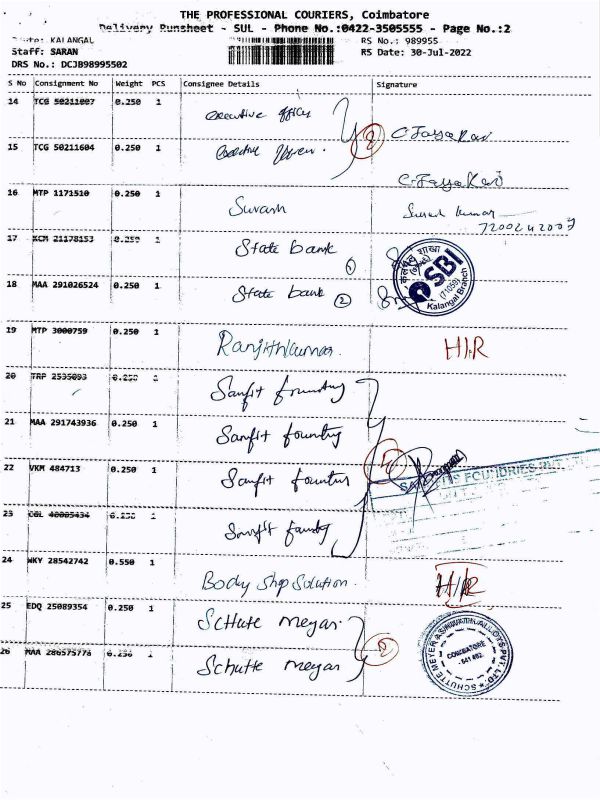 THE PROFESSIONAL COURIERS, Coimbatore
Delivery Runsheet - SUL - Phone No.:0422-3505555 - Page No.:2
KALANGAL RS No.: 989955
Staff: SARAN RS Date: 30-Jul-2022
DRS No.: DCJB98995502
S No Consignment No Weight PCS Consignee Details Signature
14 TCG 50211007 0.250 1 executive officer
15 TCG 50211604 0.250 1 2 C. Jayakavi
C. Jayakavi
16 MTP 1171510 0.250 1 Suresh kumar
7200242007
17 KCM 21178153 0.250 1 State bank 1
18 MAA 291026524 0.250 1 State bank 2
कलंगल शाखा
SBI
(71059)
Kalangal Branch
19 MTP 3000759 0.250 1 Ranjithkumar. H.R
20 TRP 2535093 0.250 1 Sanfit foundry
21 MAA 291743936 0.250 1 Sanfit foundry
22 VKM 484713 0.250 1 Sanfit
FOUNDRIES PVT
23 0.250 1 Sanfit foundry
24 WKY 28542742 0.550 1 Body Shop Solution. H/R
25 EDQ 25089354 0.250 1 Schutte Meyar
26 MAA 286575778 0.250 1 Schutte meyar 2
SCHUTTE MEYER ASHWATH ALLOYS PVT. LTD
COIMBATORE
641 402.